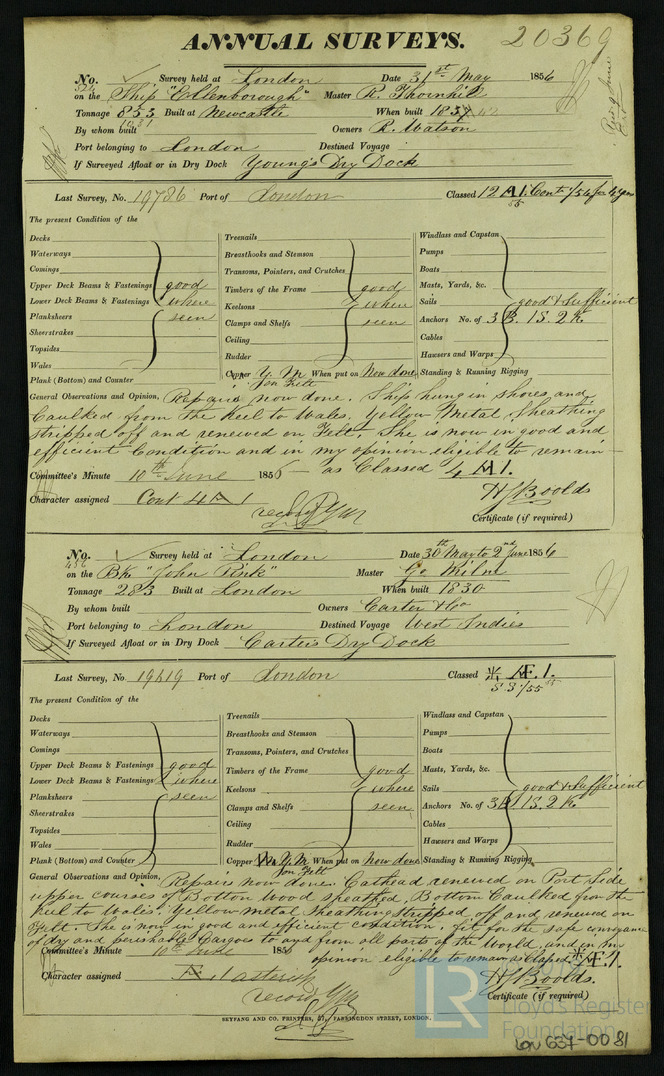 ANNUAL SURVEYS.
20369
No. 524 Survey held at London Date 31st May 1856
on the Ship "Ellenborough" Master R. Thornhill
Tonnage 853 Built at Newcastle When built 1837
1031
By whom built Owners R. Watson
Port belonging to London Destined Voyage
If Surveyed Afloat or in Dry Dock Young's Dry Dock
Last Survey, No. 19736 Port of London Classed 12 A1. Cont 1/54 for 4 yrs
55
The present Condition of the
Decks
Waterways
Comings
Upper Deck Beams & Fastenings good
Lower Deck Beams & Fastenings where
Planksheers seen
Sheerstrakes
Topsides
Wales
Plank (Bottom) and Counter
Treenails
Breasthooks and Stemson
Transoms, Pointers, and Crutches
Timbers of the Frame good
Keelsons where
Clamps and Shelfs seen
Ceiling
Rudder
Copper Y. M When put on Now done
on Felt
Windlass and Capstan
Pumps
Boats
Masts, Yards, &c.
Sails good & Sufficient
Anchors No. of 3 B. 1 S. 2 K
Cables
Hawsers and Warps
Standing & Running Rigging
General Observations and Opinion, Repairs now done. Ship hung in Shores and
Caulked from the Keel to Wales. Yellow Metal Sheathing
stripped off and renewed on Felt. She is now in good and
efficient Condition and in my opinion eligible to remain
Committee's Minute 10th June 1856 — as Classed 4 A1.
Character assigned Cont 4 A 1
H J Boolds
record YM
Certificate (if required)
No. 486 Survey held at London Date 30th May to 2nd June 1856
on the Bk "John Pink" Master Go. Milne
Tonnage 283 Built at London When built 1830
By whom built Owners Carter & Co
Port belonging to London Destined Voyage West Indies
If Surveyed Afloat or in Dry Dock Carters Dry Dock
Last Survey, No. 19419 Port of London Classed * Æ.1.
S S /55 55
The present Condition of the
Decks
Waterways
Comings
Upper Deck Beams & Fastenings good
Lower Deck Beams & Fastenings where
Planksheers seen
Sheerstrakes
Topsides
Wales
Plank (Bottom) and Counter
Treenails
Breasthooks and Stemson
Transoms, Pointers, and Crutches
Timbers of the Frame good
Keelsons where
Clamps and Shelfs seen
Ceiling
Rudder
Copper Y.M When put on Now done
on Felt
Windlass and Capstan
Pumps
Boats
Masts, Yards, &c.
Sails good & Sufficient
Anchors No. of 3 B 1 S. 2 K
Cables
Hawsers and Warps
Standing & Running Rigging
General Observations and Opinion, Repairs now done. Cathead renewed on Port Side
upper courses of Bottom Wood Sheathed, Bottom Caulked from the
Keel to Wales. Yellow Metal Sheathing Stripped off and renewed on
Felt. She is now in good and efficient condition, fit for the safe conveyance
of dry and perishable Cargoes to and from all parts of the World, and in my
Committee's Minute 10th June 1856 opinion eligible to remain as Classed * Æ.1.
Character assigned Æ 1 asterisk
H J Boolds.
record YM
Certificate (if required)
SEYFANG AND CO. PRINTERS, 57, FARRINGDON STREET, LONDON.
LR
Lloyd's Register
Foundation
LON 657-0081